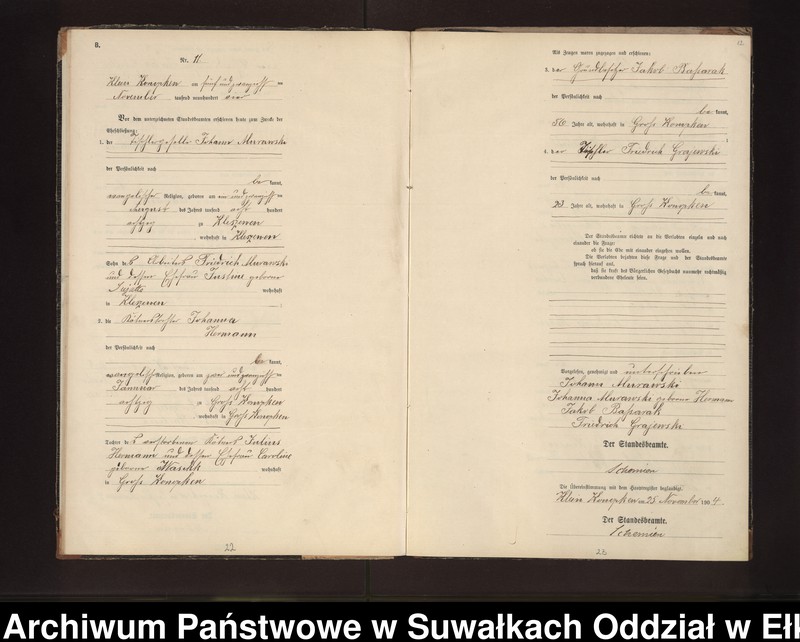 B.
Nr. 11
Klein Konopken am fünfundzwanzigsten
November tausend neunhundert vier
Vor dem unterzeichneten Standesbeamten erschienen heute zum Zwecke der
Eheschließung:
1. der Tischlergeselle Johann Murawski
der Persönlichkeit nach
be kannt,
evangelischer Religion, geboren am einundzwanzigsten
August des Jahres tausend acht hundert
achtzig zu
, wohnhaft in
Sohn des Arbeiters Friedrich Murawski
und dessen Ehefrau Justine geborene
wohnhaft
in
2. die Käthnertochter Johanna
Hermann
der Persönlichkeit nach
be kannt,
evangelischer Religion, geboren am zweiundzwanzigsten
Januar des Jahres tausend acht hundert
achtzig zu Groß Konopken
, wohnhaft in Groß Konopken
Tochter des verstorbenen Käthners Julius
Hermann und dessen Ehefrau Caroline
geborene wohnhaft
in Groß Konopken
22
13.
Als Zeugen waren zugezogen und erschienen:
3. der Grundbesitzer Jakob Basarak
der Persönlichkeit nach
be kannt,
50 Jahre alt, wohnhaft in Groß Konopken
4. der Tischler Friedrich Grajewski
der Persönlichkeit nach
be kannt,
23 Jahre alt, wohnhaft in Groß Konopken
Der Standesbeamte richtete an die Verlobten einzeln und nach
einander die Frage:
ob sie die Ehe mit einander eingehen wollen.
Die Verlobten bejahten diese Frage und der Standesbeamte
sprach hierauf aus,
daß sie kraft des Bürgerlichen Gesetzbuchs nunmehr rechtmäßig
verbundene Eheleute seien.
Vorgelesen, genehmigt und unterschrieben
Johann Murawski
Johanna Murawski geborene Hermann
Jakob Basarak
Friedrich Grajewski
Der Standesbeamte.
Schemien
Die Übereinstimmung mit dem Hauptregister beglaubigt.
Klein Konopken, 25 November 1904.
Der Standesbeamte.
Schemien
23
Archiwum Państwowe w Suwałkach Oddział w Eł